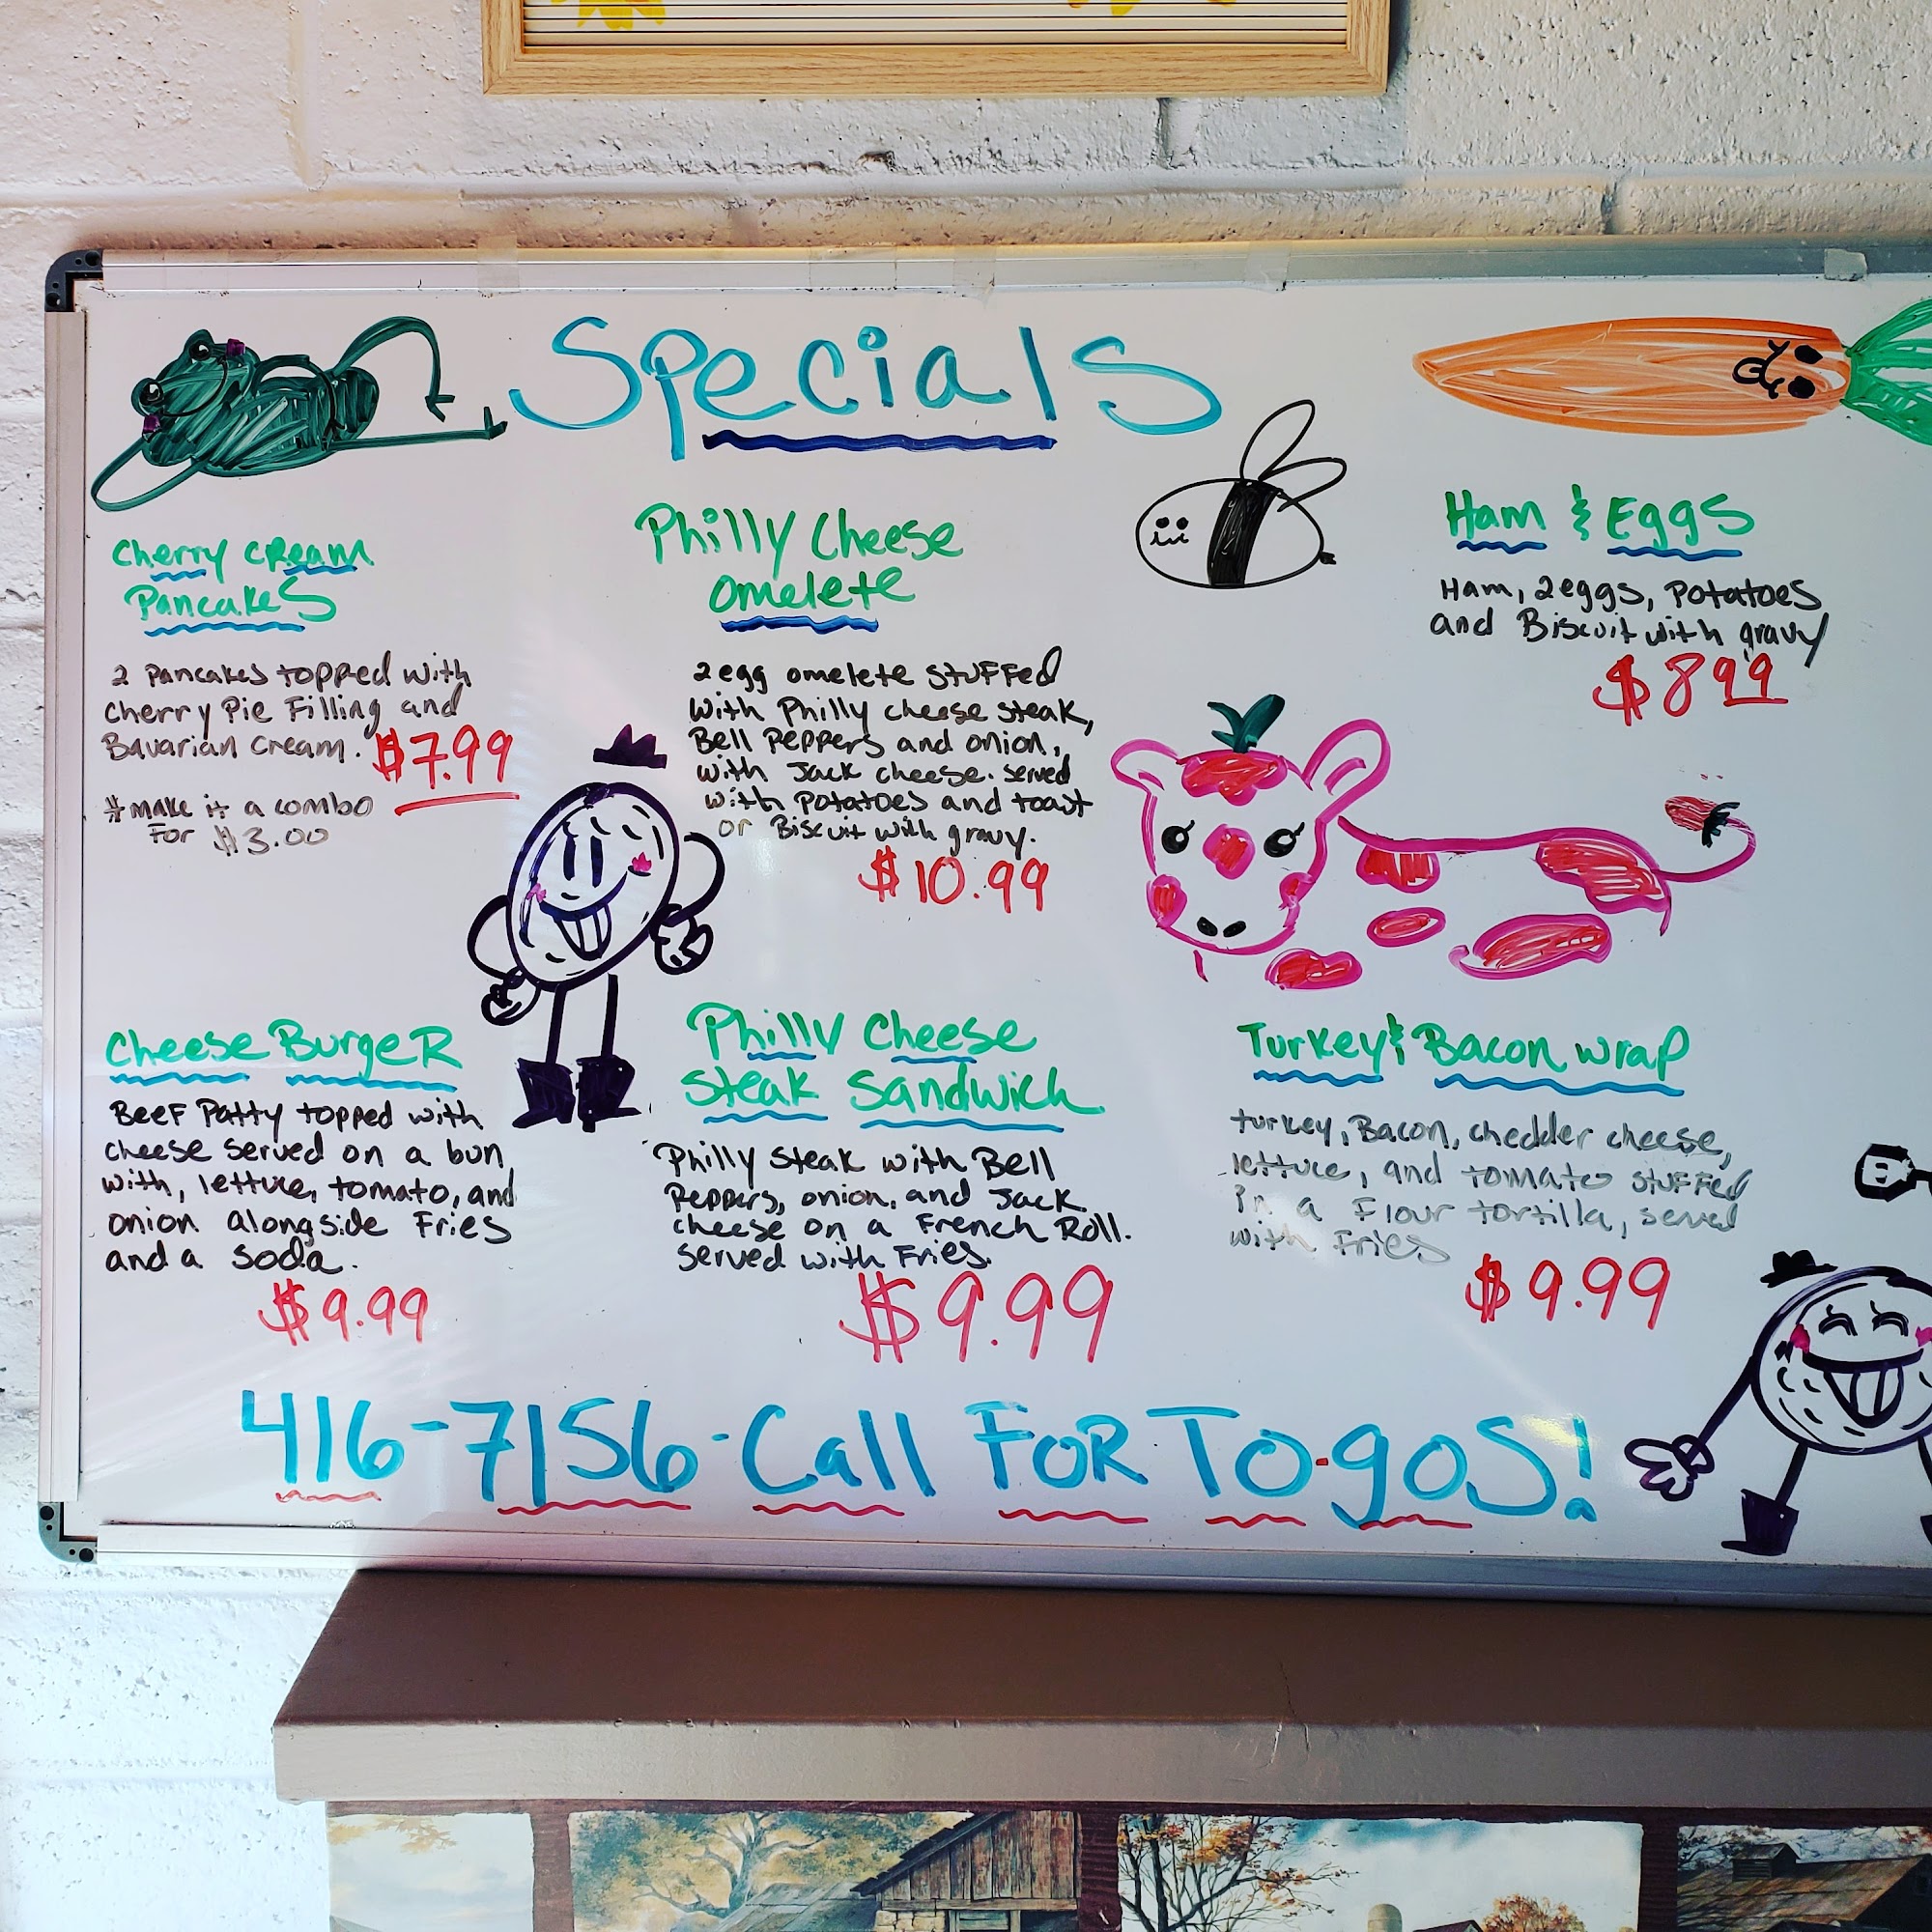 Specials
Cherry Cream
Pancakes
2 Pancakes topped with
Cherry Pie Filling and
Bavarian Cream. $7.99
#make it a combo
For $3.00
Philly Cheese
Omelete
2 egg omelete stuffed
with Philly cheese steak,
Bell Peppers and onion,
with Jack cheese. served
with Potatoes and toast
or Biscuit with gravy.
$10.99
Ham & Eggs
Ham, 2 eggs, Potatoes
and Biscuit with gravy
$899
Cheese Burger
Beef Patty topped with
cheese served on a bun
with, lettuce, tomato, and
onion alongside Fries
and a soda.
$9.99
Philly Cheese
Steak Sandwich
Philly Steak with Bell
Peppers, onion, and Jack
cheese on a French Roll.
served with Fries.
$9.99
Turkey & Bacon wrap
turkey, Bacon, chedder cheese,
lettuce, and tomato stuffed
in a Flour tortilla, served
with Fries
$9.99
416-7156-Call For To-gos!